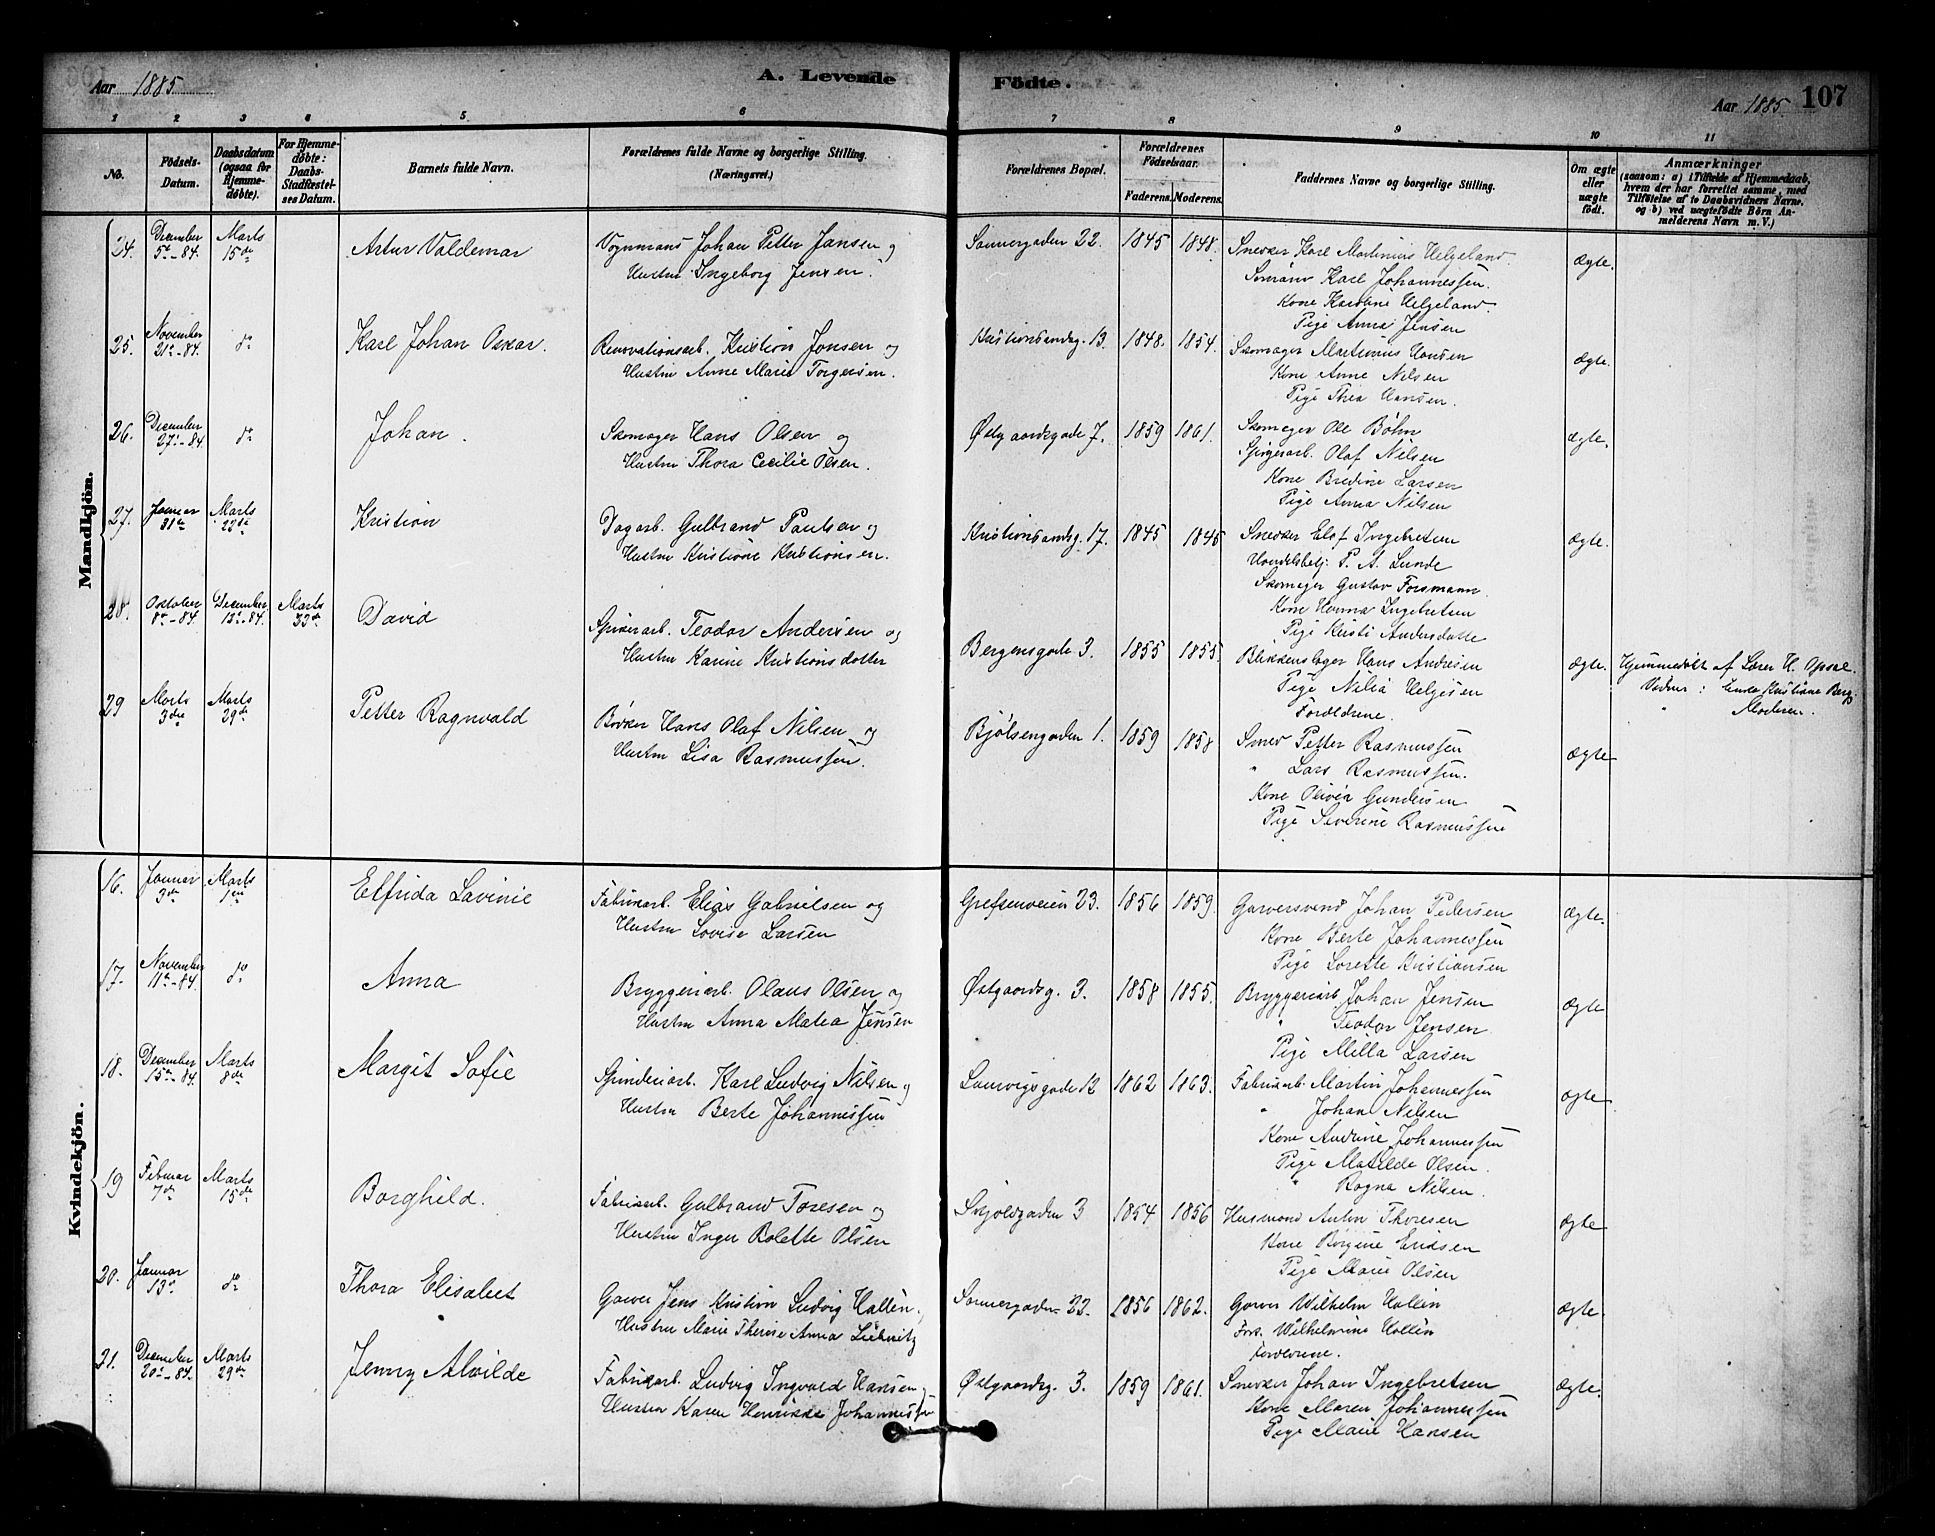 Aar 1885
A. Levende
Födte.
Aar 1885
107
1 2 3 4 5 6 7 8 9 10 11
No.
Födsels-
Datum.
Daabsdatum
(ogsaa for
Hjemme-
døbte).
For Hjemme-
døbte:
Daabs-
Stadfæstel-
ses Datum.
Barnets fulde Navn.
Forældrenes fulde Navne og borgerlige Stilling.
(Næringsvei.)
Forældrenes Bopæl.
Forældrenes
Födselsaar.
Faderens. Moderens.
Faddernes Navne og borgerlige Stilling.
Om ægte
eller
uægte
født.
Anmærkninger
(saasom: a) i Tilfælde af Hjemmedaab,
hvem der har forrettet samme, med
Tilføielse af to Daabsvidners Navne.
og b) ved uægtefødte Börn An-
melderens Navn m. V.)
Mandkjön.
24. December 5te-84. Marts 15de Artur Valdemar
Vognmand Johan Petter Jansen og
Hustru Ingeborg Jensen.
Sannergaden 22. 1845 1848.
Snedker Karl Martinius Helgeland.
Sømand Karl Johannessen.
Kone Karoline Helgeland.
Pige Anna Jensen
ægte.
25. November 21de-84. do Karl Johan Oskar.
Renovationsarb. Kristian Jonsen og
Hustru Anne Marie Torgersen.
Kristiansandsg. 13. 1848. 1854.
Skomager Martinius Hansen
Kone Anne Nilsen
Pige Thea Hansen.
ægte.
26. December 27de-84 do Johan.
Skomager Hans Olsen og
Hustru Thora Cecilie Olsen.
Østgaardsgade 7. 1859 1861.
Skomager Ole Bøhn
Spigerarb. Olaf Nilsen
Kone Bredine Larsen
Pige Anna Nilsen
ægte.
27. Januar 31te Marts 22de Kristian
Dagarb. Gulbrand Paulsen og
Hustru Kristiane Kristiansen.
Kristiansandsg. 17. 1845 1845
Snedker Elof Ingebretsen
Handelsbetj. P. A. Lunde
Skomager Gustav Forsmann.
Kone Hanna Ingebretsen
Pige Kristi Andersdatter
ægte.
28. October 8de-84. December 13de-84. Marts 22de. David
Spigerarb. Teodor Andersen og
Hustru Karine Kristiansdatter
Bergensgade 3. 1855 1855.
Blikkenslager Hans Andresen
Pige Nilia Helgesen
Forældrene.
ægte. Hjemmedøbt af Lærer H. Opsal.
Vidner: Enke Kristiane Berg
" Moderen.
29 Marts 3die Marts 29de Petter Ragnvald
Bødker Hans Olaf Nilsen og
Hustru Lisa Rasmussen.
Bjølsengaden 1. 1859 1858
Smed Petter Rasmussen
" Lars Rasmussen.
Kone Olivia Gundersen
Pige Severine Rasmussen
ægte
Kvindekjön.
16. Januar 3die Marts 1ste Elfrida Lavinie
Fabrikarb. Elias Gabrielsen og
Hustru Lovise Larsen
Grefsenveien 23. 1856 1859.
Garversvend Johan Pedersen
Kone Berte Johannessen
Pige Lorette Kristiansen
ægte.
17. November 11te-84. do Anna
Bryggeriarb. Olaus Olsen og
Hustru Anna Matea Jensen
Østgaardsg. 3. 1858 1855.
Bryggeriarb. Johan Jensen
" Teodor Jensen
Pige Milla Larsen
ægte
18. December 15de-84. Marts 8de Margit Sofie
Spinderiarb. Karl Ludvig Nilsen og
Hustru Berte Johannessen
Laurvigsgade 12 1862 1863.
Fabrikarb. Martin Johannessen
" Johan Nilsen
Kone Andrine Johannessen
Pige Matilde Olsen.
" Ragna Nilsen.
ægte
19 Februar 7de Marts 15de Borghild.
Fabrikarb. Gulbrand Toresen og
Hustru Inger Bolette Olsen
Skjoldgaden 3 1854 1856
Husmand Anton Thoresen
Kone Borgine Eriksen
Pige Marie Olsen
ægte
20. Januar 13de do Thora Elisabet
Garver Jens Kristian Ludvig Hallén.
Hustru Marie Therese Anna
Sannergaden 23. 1856 1862.
Garver Wilhelm Hallén
Wilhelmine Hallén
Forældrene.
ægte.
21. December 20de-84. Marts 29de Jenny Alvilde
Fabrikarb. Ludvig Ingvald Hansen og
Hustru Karen Henrikke Johannessen
Østgaardsg. 3. 1859 1861.
Snedker Johan Ingebretsen
Kone Maren Johannessen
Pige Marie Hansen
ægte.